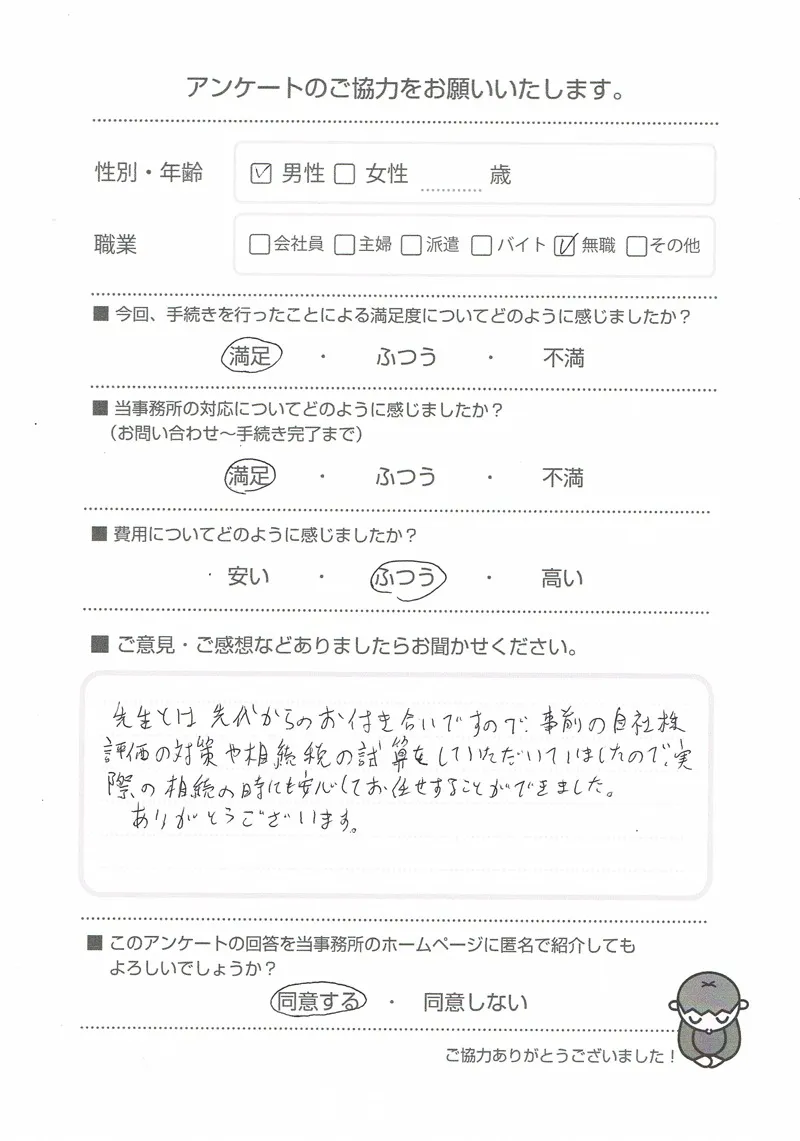 アンケートのご協力をお願いいたします。
性別・年齢 ☑ 男性 □ 女性 ............ 歳
職業 □会社員 □主婦 □派遣 □バイト ☑無職 □その他
■ 今回、手続きを行ったことによる満足度についてどのように感じましたか？
満足 ・ ふつう ・ 不満
■ 当事務所の対応についてどのように感じましたか？
（お問い合わせ～手続き完了まで）
満足 ・ ふつう ・ 不満
■ 費用についてどのように感じましたか？
安い ・ ふつう ・ 高い
■ ご意見・ご感想などありましたらお聞かせください。
先生とは先代からのお付き合いですので、事前の自社株
評価の対策や相続税の試算をしていただいていましたので、実
際の相続の時にも安心してお任せすることができました。
ありがとうございます。
■ このアンケートの回答を当事務所のホームページに匿名で紹介しても
よろしいでしょうか？
同意する ・ 同意しない
ご協力ありがとうございました！